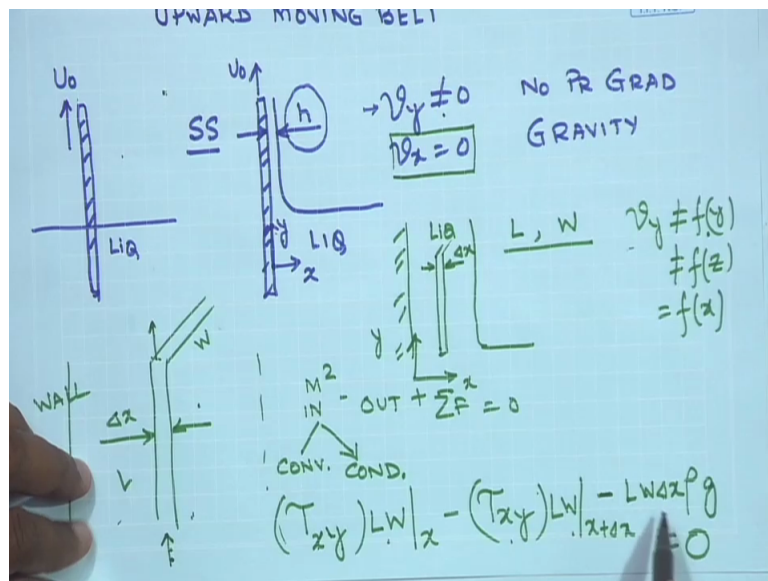 UPWARD MOVING BELT
U₀
U₀
SS
h
→ 𝑣y ≠ 0
𝑣x = 0
NO PR GRAD
GRAVITY
LIQ
y
LIQ
x
LIQ
Δx
L, W
𝑣y ≠ f(y)
≠ f(z)
= f(x)
y
x
W
WALL
Δx
L
M² IN - OUT + ΣF = 0
CONV. COND.
(τxy)LW|x - (τxy)LW|x+Δx - LWΔxρg = 0